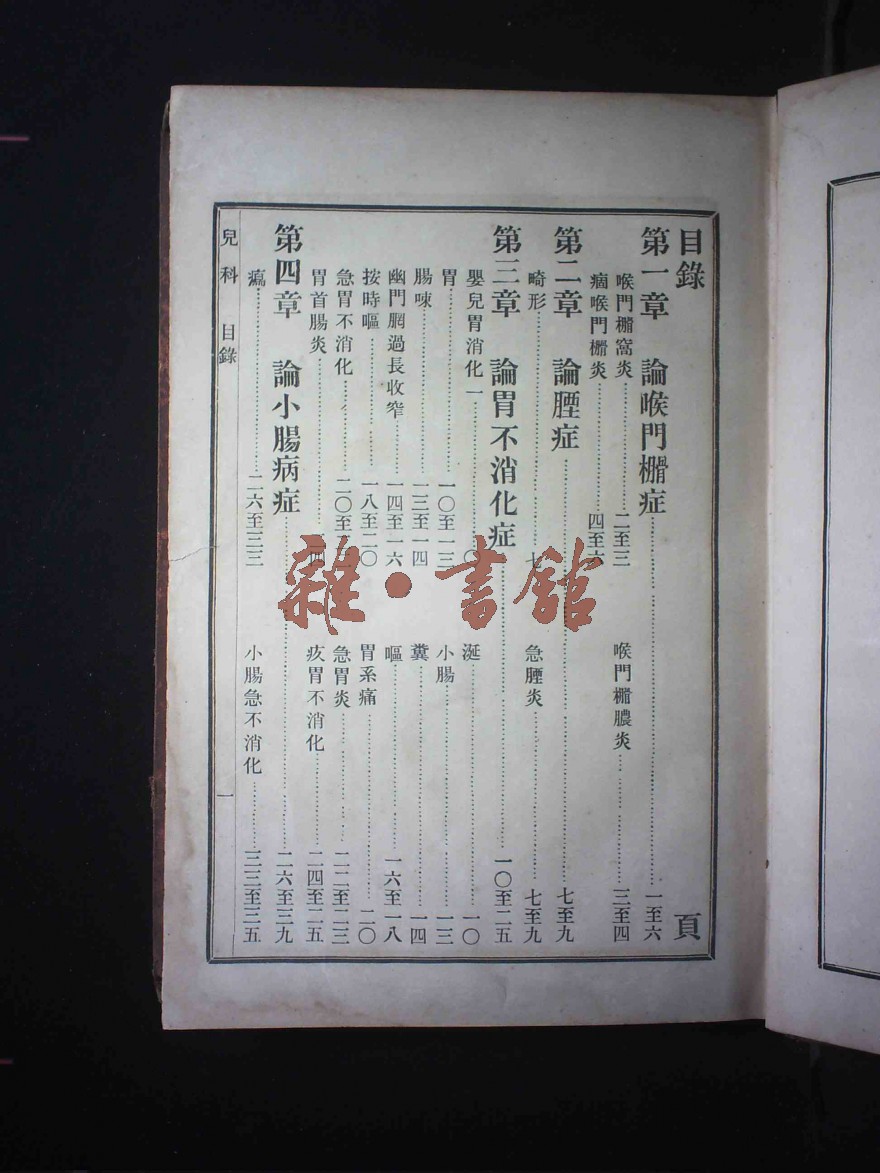 目錄 頁
第一章 論喉門櫤症 一至六
喉門櫤窩炎 二至三 喉門櫤膿炎 三至四
痼喉門櫤炎 四至六
第二章 論腫症 七至九
畸形 七 急腫炎 七至九
第三章 論胃不消化症 一〇至二五
嬰兒胃消化一 涎 一〇
胃 一〇至一三 小腸 一三
腸㖨 一三至一四 糞 一四
幽門䐃過長收窄 一四至一六 嘔 一六至一八
按時嘔 一八至二〇 胃系痛 二〇
急胃不消化 二〇至 急胃炎 二二至二三
胃首腸炎 疚胃不消化 二四至二五
第四章 論小腸病症 二六至三九
瀉 二六至三三 小腸急不消化 三三至三五
兒科 目錄 一
雜·書館